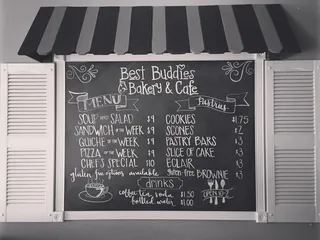 Best Buddies
Bakery & Cafe
MENU
SOUP AND SALAD $9
SANDWICH of the WEEK $9
QUICHE of the WEEK $9
PIZZA of the WEEK $9
CHEF'S SPECIAL $10
gluten free options available
Pastries
COOKIES $1.75
SCONES $2
PASTRY BARS $3
SLICE OF CAKE $3
ECLAIR $3
gluten-free BROWNIE $3
drinks
coffee, tea, soda $1.50
bottled water $1.00